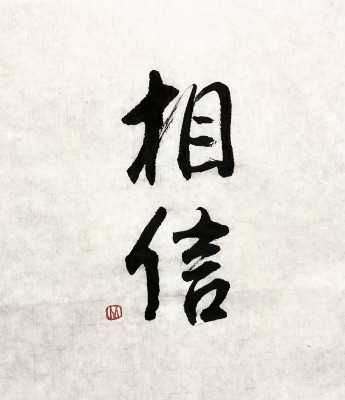 相信
M